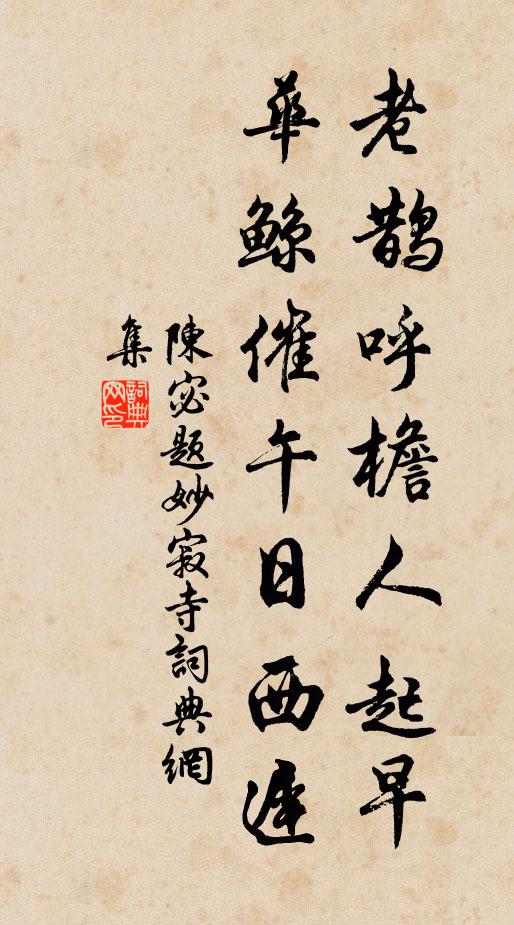 老鵲呼檐人起早
華鯨催午日西遲
陳宓題妙寂寺詞典網
集
詞典網印